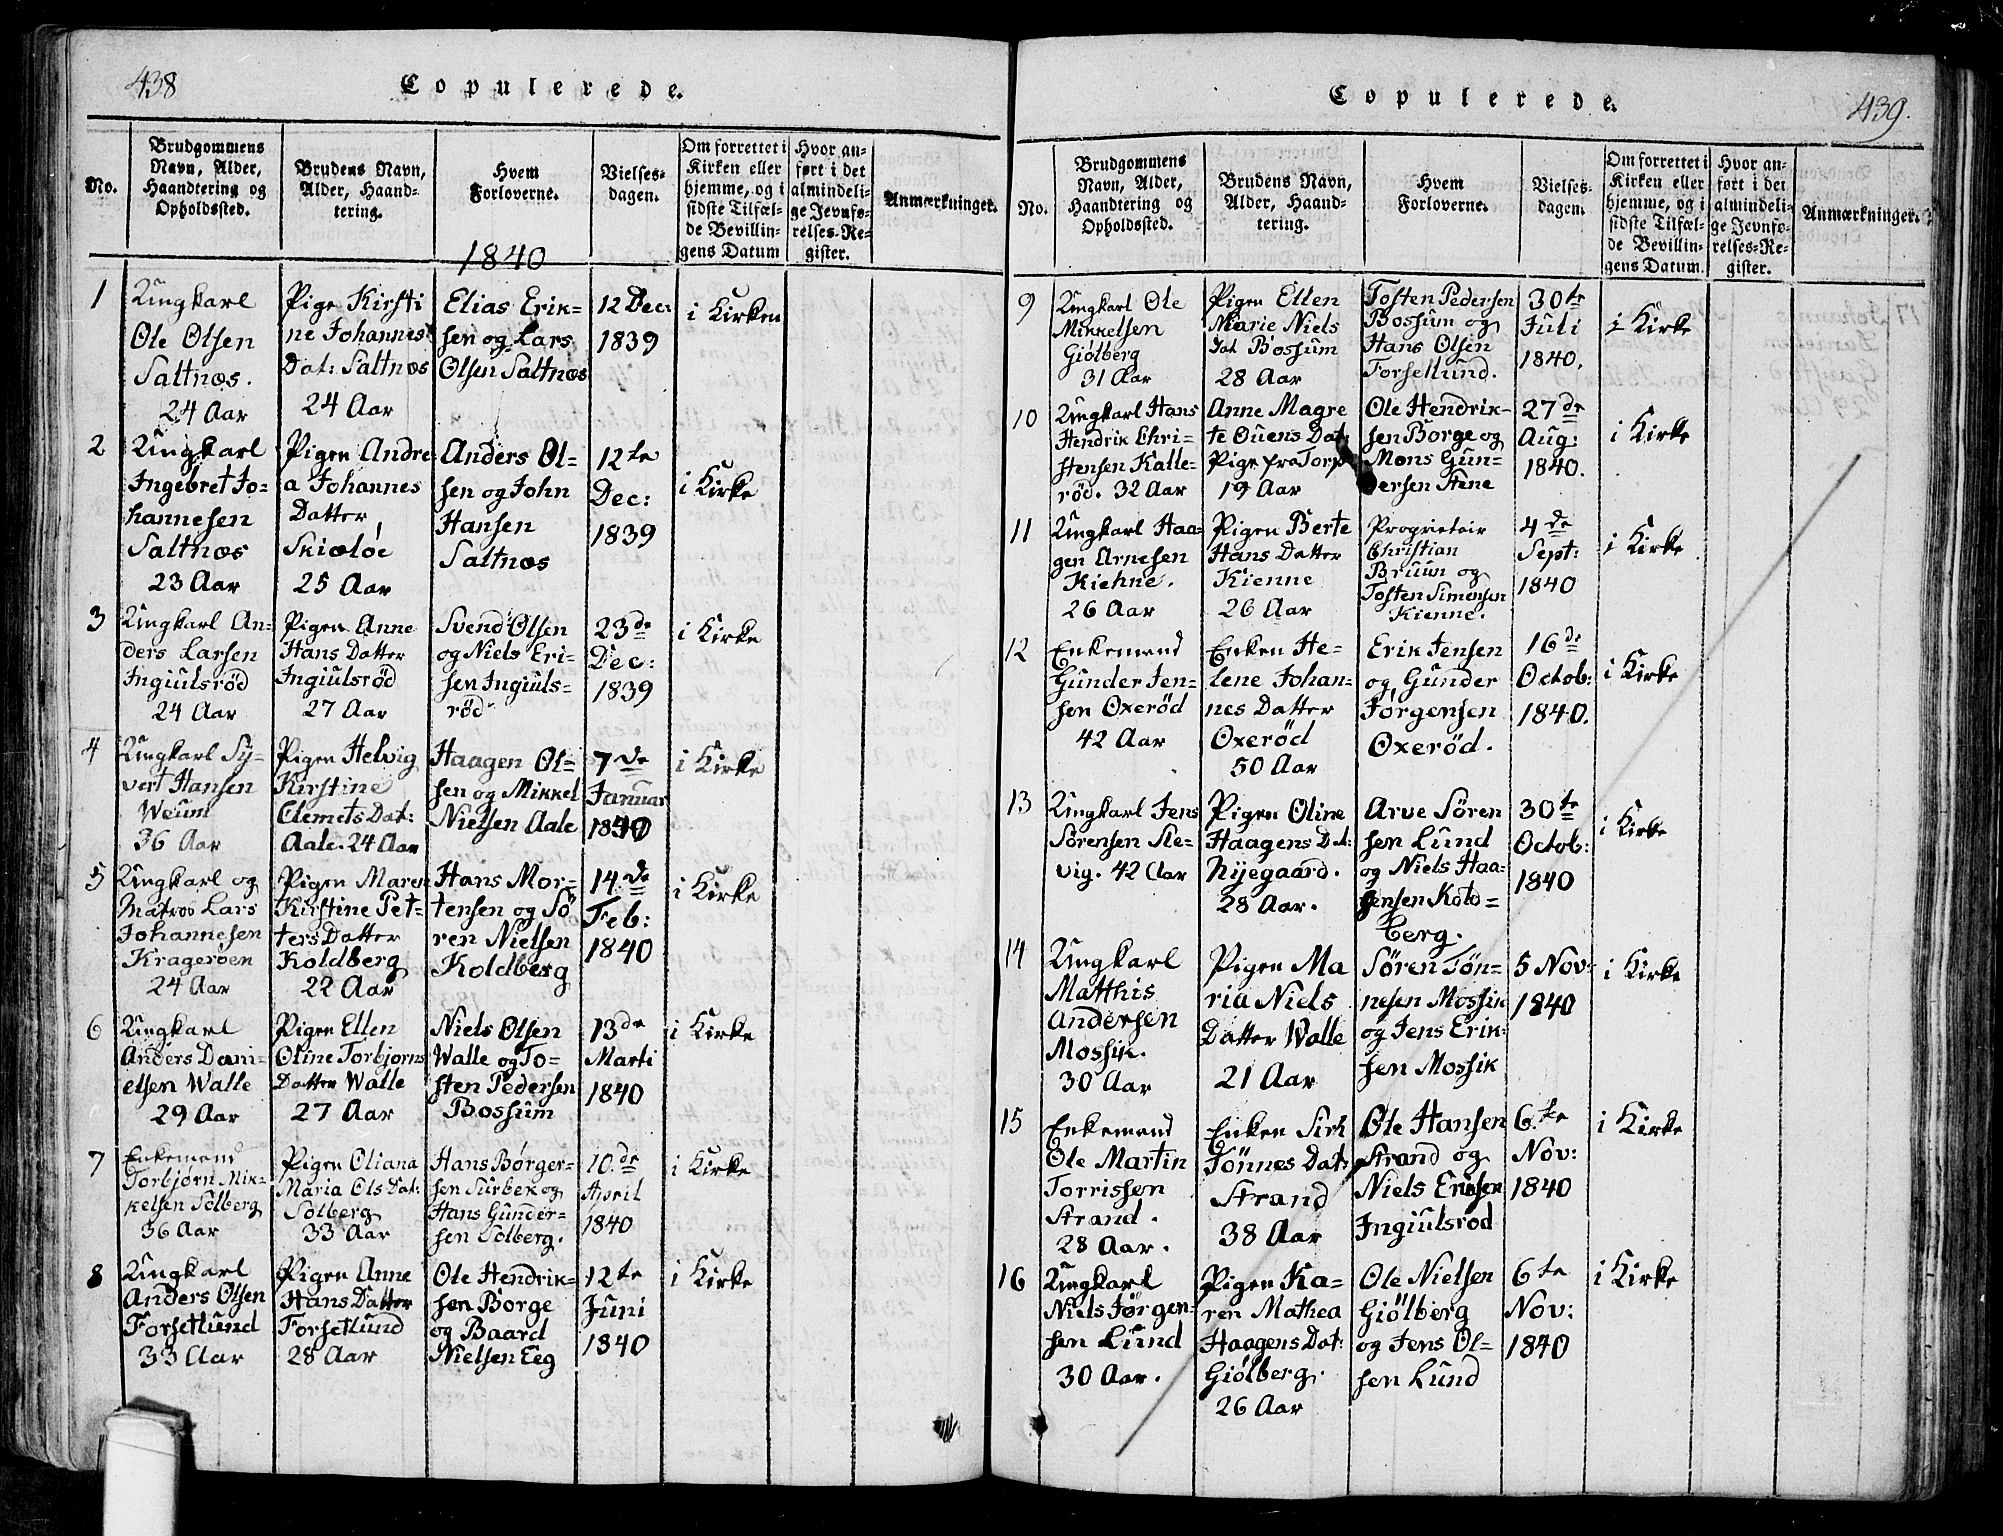 438
Copulerede.
No.
Brudgommens
Navn, Alder,
Haandtering og
Opholdssted.
Brudens Navn,
Alder, Haand-
tering.
Hvem
Forloverne.
Vielses-
dagen.
Om forrettet i
Kirken eller
hjemme, og i
sidste Tilfæl-
de Bevillin-
gens Datum
Hvor an-
ført i det
almindeli-
ge Jevnfø-
relses-Re-
gister.
Anmærkninger.
1840
1
Ungkarl
Ole Olsen
Saltnæs.
24 Aar
Pige Kirsti
ne Johannes
Dat: Saltnæs
24 Aar
Elias Erik-
sen og Lars
Olsen Saltnæs
12 Dec:
1839
i Kirken
2
Ungkarl
Ingebret Jo-
hannesen
Saltnæs
23 Aar
Pigen Andre
a Johannes
Datter
Skiæløe
25 Aar
Anders Ol-
sen og John
Hansen
Saltnæs
12te
Dec:
1839
i Kirke
3
Ungkarl An-
ders Larsen
Ingiulsröd
24 Aar
Pigen Anne
Hans Datter
Ingiulsröd
27 Aar
Svend Olsen
og Niels Eri-
sen Ingiuls-
röd
23de
Dec:
1839
i Kirke
4
Ungkarl Sy-
vert Hansen
Weum
36 Aar
Pigen Helvig
Kirstine
Clemets Dat:
Aale. 24 Aar
Haagen Ol-
sen og Mikkel
Nielsen Aale
7de
Januar
1840
i Kirke
5
Ungkarl og
Matros Lars
Johannesen
Kragerøen
24 Aar
Pigen Maren
Kirstine Pet-
ters Datter
Koldberg
22 Aar
Hans Mor-
tensen og Sö
ren Nielsen
Koldberg
14de
Feb:
1840
i Kirke
6
Ungkarl
Anders Dani-
elsen Walle
29 Aar
Pigen Ellen
Oline Torbjorns
Datter Walle
27 Aar
Niels Olsen
Walle og To-
sten Pedersen
Bossum
13de
Marti
1840
i Kirke
7
Enkemand
Torbjørn Mik-
kelsen Solberg
36 Aar
Pigen Oliana
Maria Ols Dat:
Solberg
33 Aar
Hans Börger-
sen Surbek og
Hans Gunder-
sen Solberg.
10.de
April
1840
i Kirke
8
Ungkarl
Anders Olsen
Forsetlund
33 Aar
Pigen Anne
Hans Datter
Forsetlund
28 Aar
Ole Hendrik-
sen Borge
og Baard
Nielsen Eeg
12te
Juni
1840
i Kirke
Copulerede.
439.
No.
Brudgommens
Navn, Alder,
Haandtering og
Opholdssted.
Brudens Navn,
Alder, Haand-
tering.
Hvem
Forloverne.
Vielses-
dagen.
Om forrettet i
Kirken eller
hjemme, og i
sidste Tilfæl-
de Bevillin-
gens Datum.
Hvor an-
ført i det
almindeli-
ge Jevnfø-
relses-Re-
gister.
Anmærkninger.
9
Ungkarl Ole
Mikkelsen
Giölberg
31 Aar
Pigen Ellen
Marie Niels
Dat Bossum
28 Aar
Tosten Pedersen
Bossum og
Hans Olsen
Forsetlund.
30te
Juli
1840.
i Kirke
10
Ungkarl Hans
Hendrik Chri-
stensen Kalle-
röd. 32 Aar
Anne Magre
te Ouens Dat:
Pige fra Torp
19 Aar
Ole Hendrik-
sen Borge og
Mons Gun-
dersen Stene
27de
Aug:
1840.
i Kirke
11
Ungkarl Haa-
gen Arnesen
Kiehne.
26 Aar
Pigen Berte
Hans Datter
Kienne
26 Aar
Proprietair
Christian
Bruun og
Tosten Simensen
Kienne.
4de
Sept:
1840
i Kirke
12
Enkemand
Gunder Jen-
sen Oxeröd
42 Aar
Enken He-
lene Johan-
nes Datter
Oxeröd
50 Aar
Erik Jensen
og Gunder
Jörgensen
Oxeröd.
16de
Octob:
1840.
i Kirke
13
Ungkarl Jens
Sörensen Sle-
vig. 42 Aar
Pigen Oline
Haagens Dat:
Nyegaard.
28 Aar.
Arve Sören
sen Lund
og Niels Haa-
gensen Kold-
berg.
30te
Octob:
1840
i Kirke
14
Ungkarl
Matthis
Andersen
Mossik.
30 Aar
Pigen Ma
ria Niels
Datter Walle
21 Aar
Sören Tön-
nesen Mossik
og Jens Erik-
sen Mossik
5 Nov:
1840
i Kirke
15
Enkemand
Ole Martin
Torrissen
Strand.
28 Aar.
Enken Siri
Tönnes Dat:
Strand
38 Aar
Ole Hansen
Strand og
Niels Eriksen
Ingiulsrod
6.te
Nov:
1840
i Kirke
16
Ungkarl
Niels Jørgen-
sen Lund
30 Aar.
Pigen Ka-
ren Mathea
Haagens Dat:
Giölberg.
26 Aar
Ole Nielsen
Giölberg
og Jens Ol-
sen Lund
6te
Nov:
1840
i Kirke